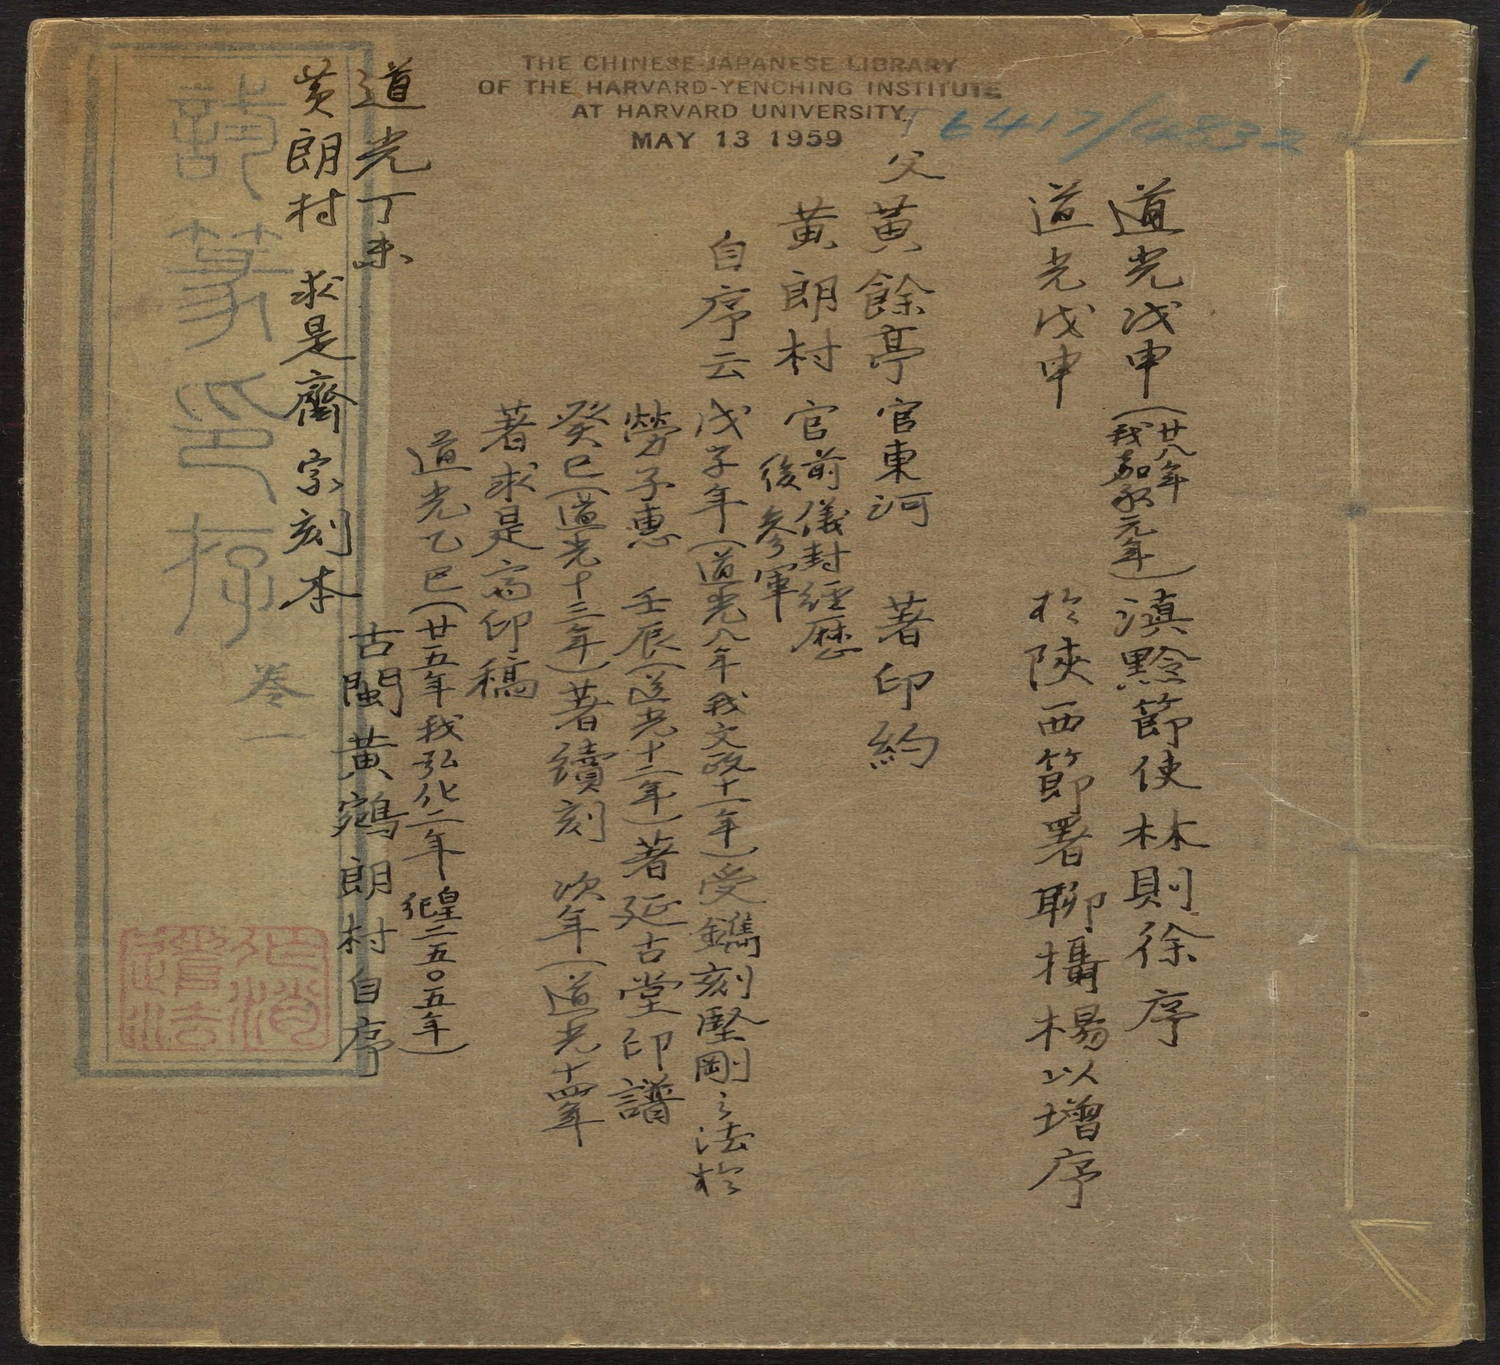 THE CHINESE-JAPANESE LIBRARY
OF THE HARVARD-YENCHING INSTITUTE
AT HARVARD UNIVERSITY
MAY 13 1959
T 6417/4832
1
道光戊申(廿八年我嘉永元年)滇黔節使林則徐序
道光戊申 於陝西節署聊攝楊以增序
父黃餘亭 官東河 著印約
黃朗村 官前儀封經歷後參軍
自序云 戊子年(道光八年我文政十一年)受鐫刻堅剛之法於
勞子惠 壬辰(道光十二年)著延古堂印譜
癸巳(道光十三年)著續刻 次年(道光十四年
著求是齋印稿
道光乙巳(廿五年我弘化二年皇紀二五〇五年)
古閩黃鵷朗村自序
道光丁未
黃朗村 求是齋家刻本
篆印存
卷一